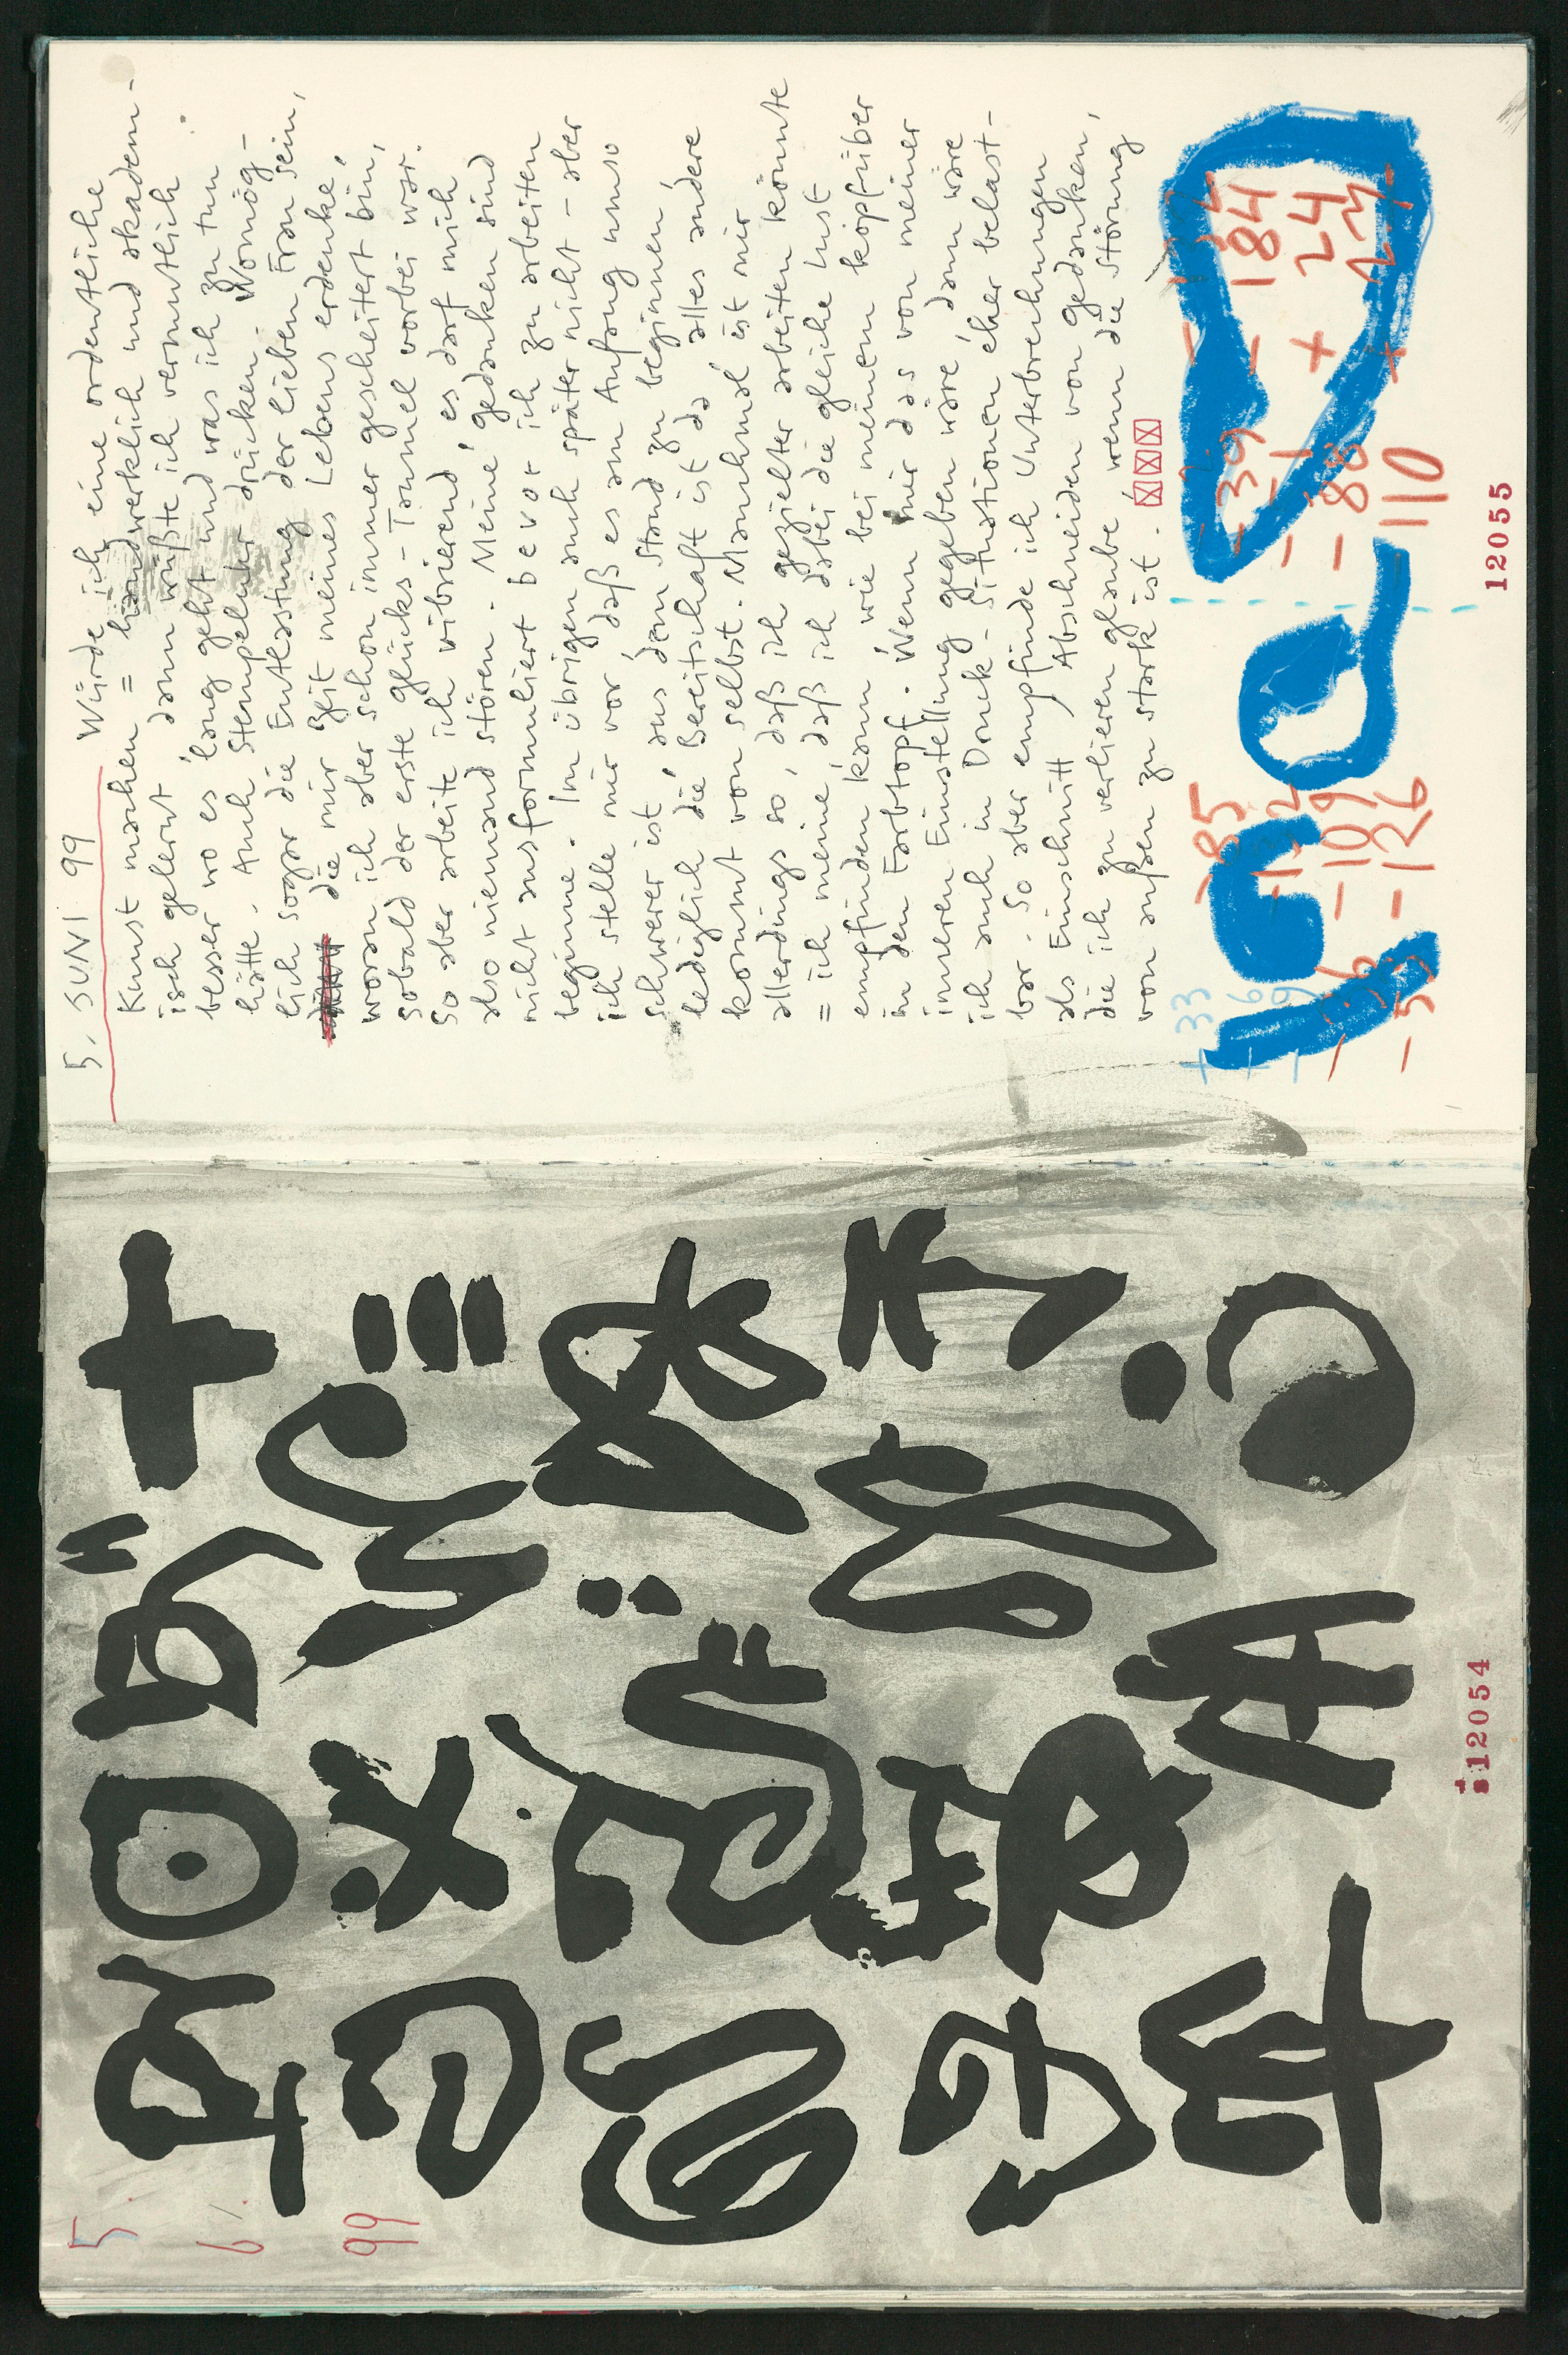 5.
6/.
99
12054
5. JUNI 99 Würde ich eine ordentliche
Kunst machen = handwerklich und akadem-
isch gelernt, dann wüßte ich vermutlich
besser wo es 'lang geht und was ich zu tun
hätte. Auch Stempeluhr-drücken. Womög-
lich sogar die Entlastung der lieben Frau sein,
die mir Zeit meines Lebens erdenke,
woran ich aber schon immer gescheitert bin,
sobald der erste glücks-Taumel vorbei war.
So aber arbeite ich vibrierend, es darf mich
also niemand stören. Meine, gedanken sind
nicht ausformuliert bevor ich zu arbeiten
beginne. Im übrigen auch später nicht - aber
ich stelle mir vor, daß es am Anfang umso
schwerer ist aus dem Stand zu beginnen,
lediglich die, Bereitschaft ist da, alles andere
kommt von selbst. Manchmal ist mir
allerdings so, daß ich gezielter arbeiten könnte
= ich meine, daß ich dabei die gleiche Lust
empfinden kann wie bei meinem kopfüber
in den Farbtopf. Wenn mir das von meiner
inneren Einstellung gegeben wäre, dann wäre
ich auch in Druck-Situationen eher belast-
bar. So aber empfinde ich Unterbrechungen
als Einschnitt / Abschneiden von gedanken,
die ich zu verlieren glaube, wenn die Störung
von außen zu stark ist.
+ 33 - 85 - 39 -
+ 6 - 184
- 9 - 109 - + 24
- - 88 +
- 5 - 126 110
12055